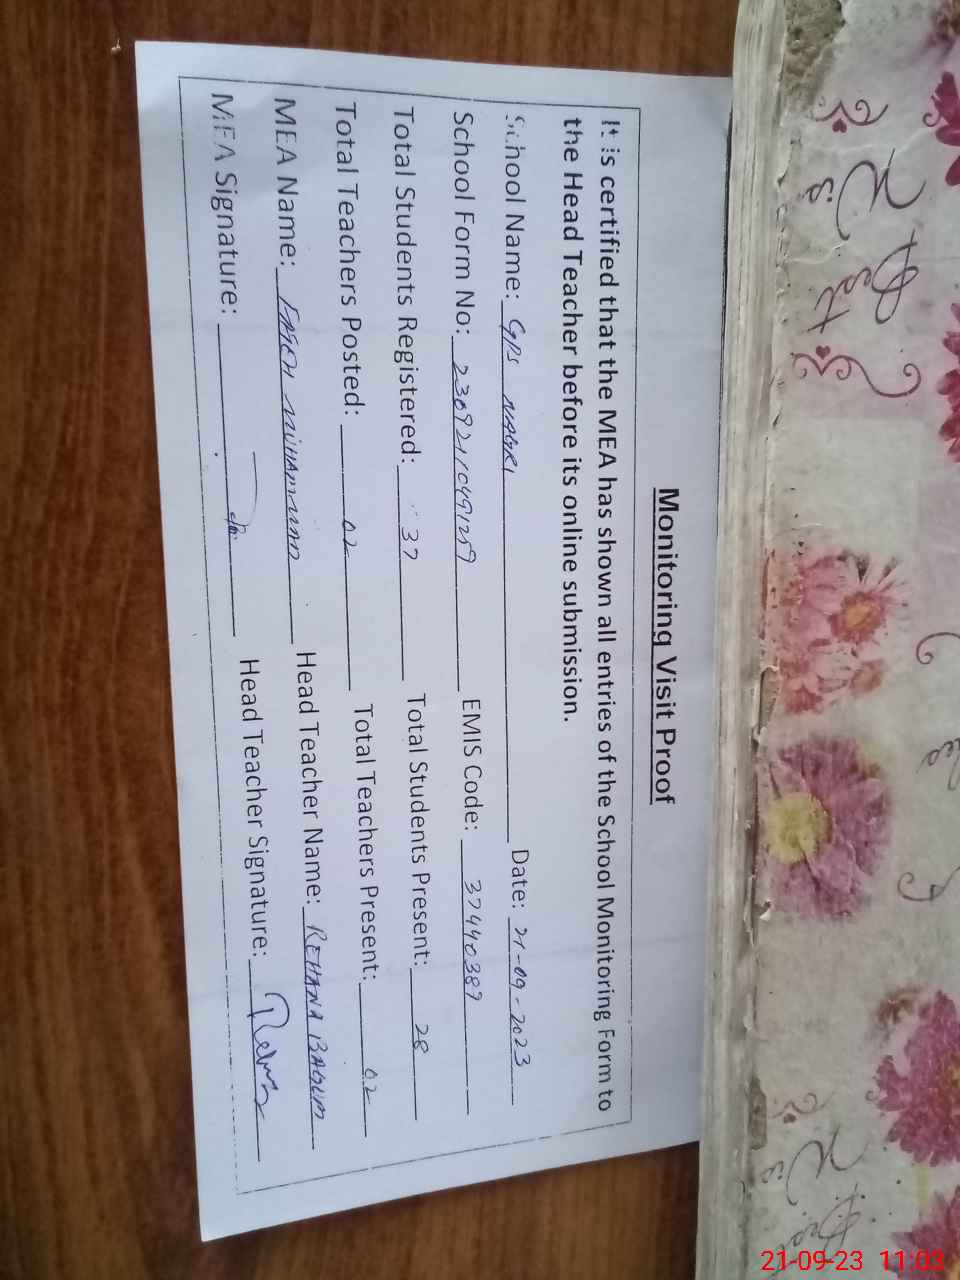 Monitoring Visit Proof
It is certified that the MEA has shown all entries of the School Monitoring Form to
the Head Teacher before its online submission.
School Name: GPS NAGRI Date: 21-09-2023
School Form No: 23092110491259 EMIS Code: 37440389
Total Students Registered: 37 Total Students Present: 28
Total Teachers Posted: 02 Total Teachers Present: 02
MEA Name: MUHAMMAD Head Teacher Name: REHANA BAGUM
MEA Signature: Head Teacher Signature:
21-09-23 11:03